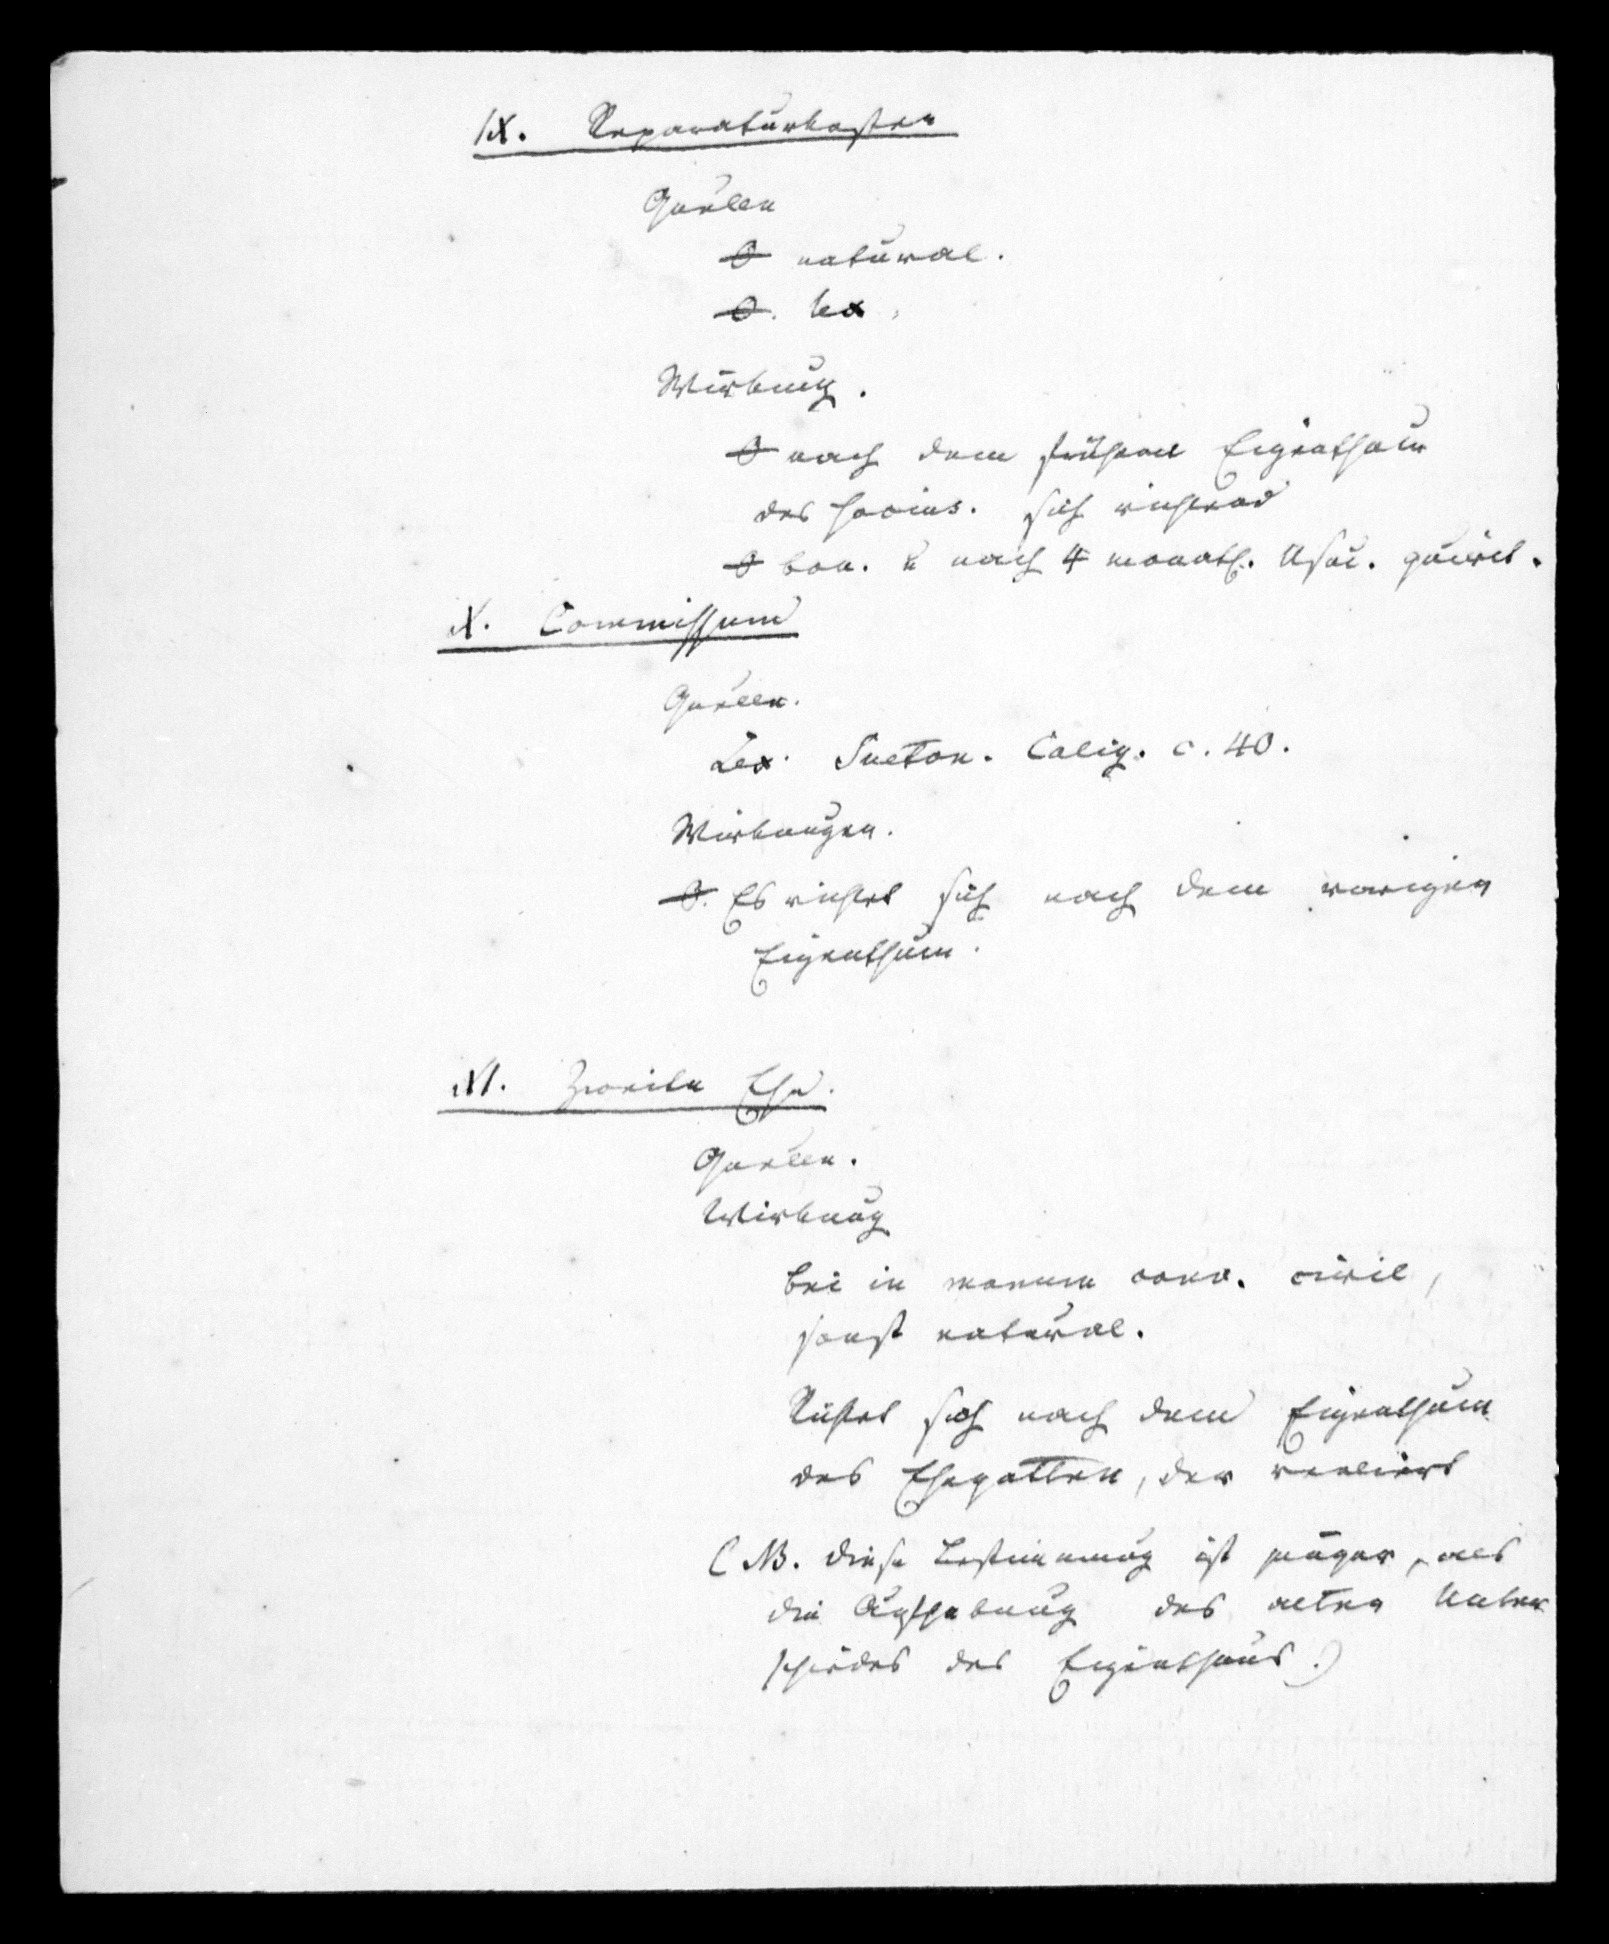 IX. Reparaturkosten
Quellen
natural.
lex.
Wirkung.
nach dem frühern Eigenthum
des socius. sich richtend
bon. u nach 4 monatl. Usu. quirit.
X. Commissum
Quellen.
Lex. Sueton. Calig. c. 40.
Wirkungen.
Es richtet sich nach dem vorigen
Eigenthum.
XI. Zweite Ehe.
Quellen.
Wirkung
bei in manum conv. civil,
sonst natural.
Richtet sich nach dem Eigenthum
des Ehegatten, der verliert
(NB. diese Bestimmung ist jünger, als
die Aufhebung des alten Unter
schiedes des Eigenthums.)